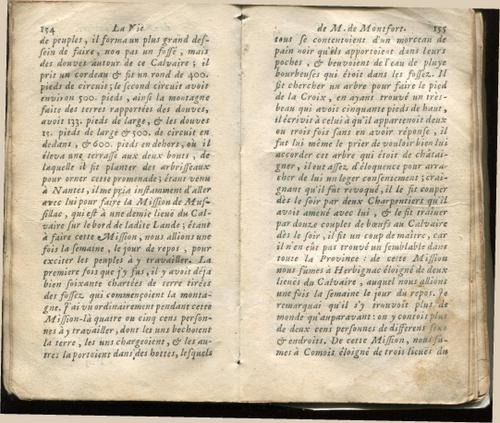 154 La Vie
de peuples, il forma un plus grand des-
sein de faire, non pas un fossé, mais
des douves autour de ce Calvaire; il
pris un cordeau & fit un rond de 400.
pieds de circuit; le second circuit avoit
environ 500. pieds, ainsi la montagne
faite des terres rapportées des douves,
avoit 133. pieds de large, & les douves
15. pieds de large & 500. de circuit en
dedans, & 600. pieds en dehors, où il
éleva une terrasse aux deux bouts, de
laquelle il fit planter des arbrisseaux
pour orner cette promenade; étant venu
à Nantes, il me pria instamment d'aller
avec lui pour faire la Mission de Mis-
sillac, qui est à une demie lieuë du Cal-
vaire sur le bord de ladite Lande; étant
à faire cette Mission, nous allions une
fois la semaine, le jour de repos, pour
exciter les peuples à y travailler. La
premiere fois que j'y fus, il y avoit déja
bien soixante chartées de terre tirées
des fossez qui commençoient la monta-
gne. J'ai vu ordinairement pendant cette
Mission-là quatre ou cinq cens person-
nes à y travailler, dont les uns bechoient
la terre, les uns chargeoient, & les au-
tres la portoient dans des hottes, lesquels
de M. de Montfort. 155
tous se contentoient d'un morceau de
pain noir qu'ils apportoient dans leurs
poches, & beuvoient de l'eau de pluye
bourbeuses qui étoit dans les fossez. Il
fit chercher un arbre pour faire le pied
de la Croix, en ayant trouvé un très-
beau qui avoit cinquante pieds de haut,
il écrivit à celui à qu'il appartenoit deux
ou trois fois sans en avoir réponse, il
fut lui même le prier de vouloir bien lui
accorder cet arbre qui étoit de chatai-
gner, il eut assez d'éloquence pour arra-
cher de lui un leger consentement; crai-
gnant qu'il fût revoqué, il le fit couper
dès le soir par deux Charpentiers qu'il
avoit amené avec lui, & le fit traîner
par douze couples de bœufs au Calvaire
dès le soir, il fit un coup de maître, car
il n'en eût pas trouvé un semblable dans
toute la Province: de cette Mission
nous fûmes à Herbignac éloigné de deux
lieuës du Calvaire, auquel nous allions
une fois la semaine le jour du repos. Je
remarquai qu'il s'y trouvoit plus de
monde qu'auparavant: on y contoit plus
de deux cens personnes de differens
& endroits. De cette Mission, nous fu-
mes à Camois éloigné de trois lieuës du